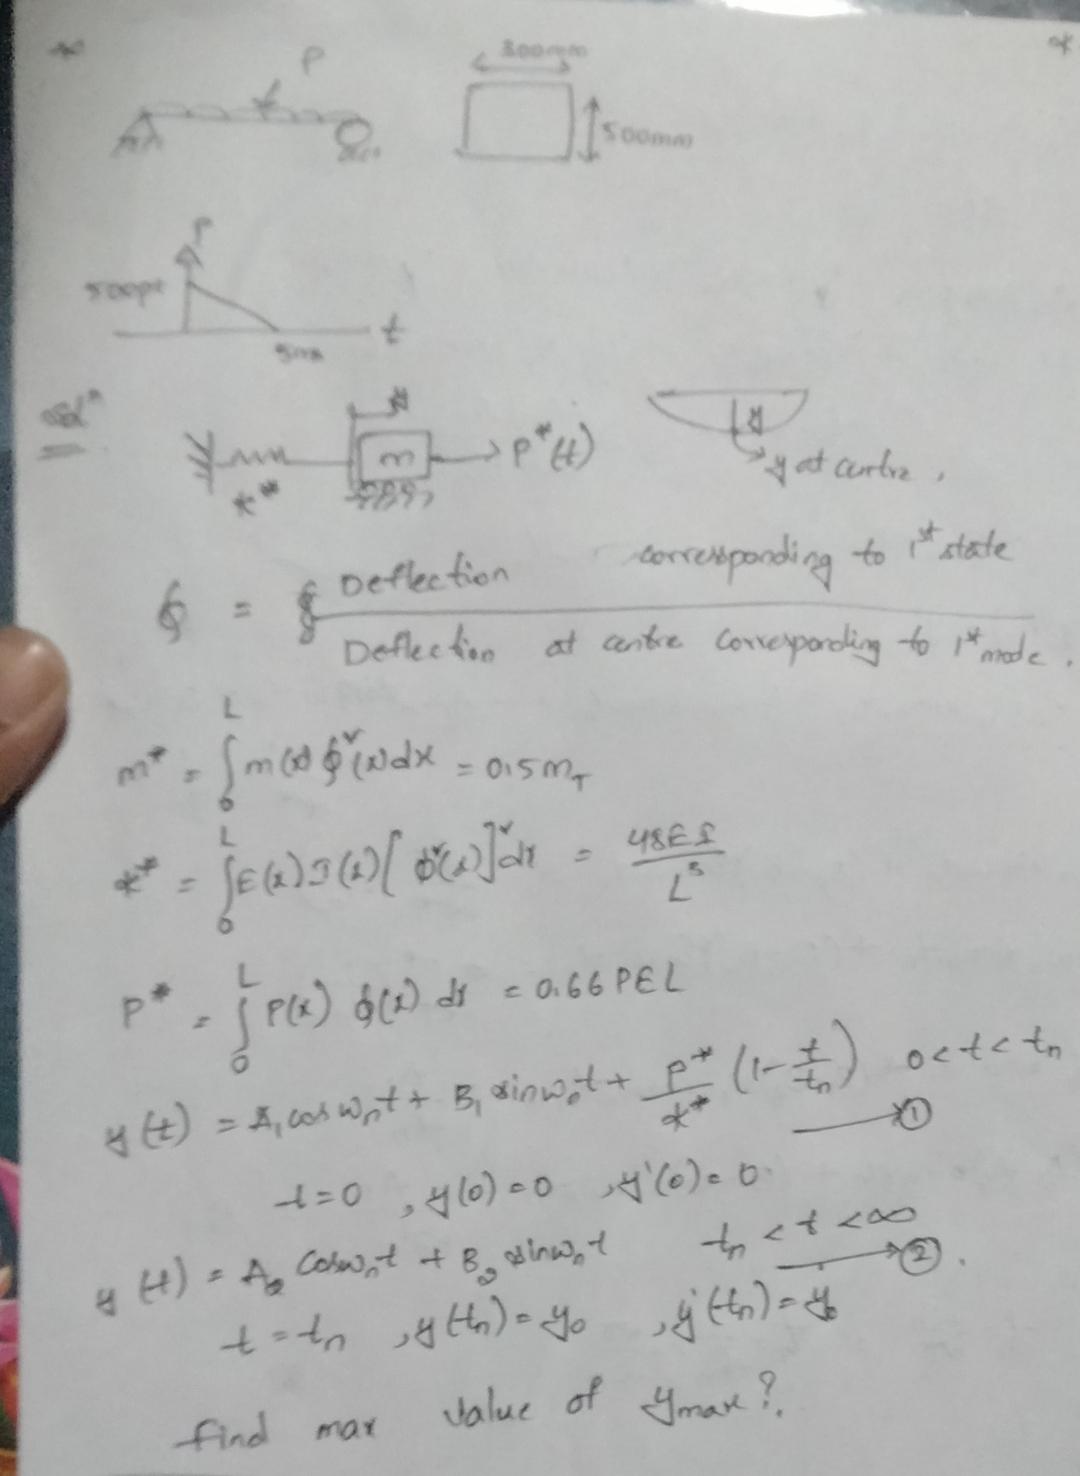 *
*
P
300mm
500mm
P
t
5ms
Solⁿ
y
m → P*(t)
k*
y
y at centre.
ϕ = Deflection corresponding to 1st state
Deflection at centre corresponding to 1st mode.
m* = ∫₀ᴸ m(x) ϕ²(x) dx = 0.5 m_T
k* = ∫₀ᴸ E(x) I(x) [ϕ''(x)]² dx = 48EI / L³
P* = ∫₀ᴸ P(x) ϕ(x) dx = 0.66 PEL
y(t) = A₁ cos ωₙt + B₁ sin ωₙt + P*/k* (1 - t/tₙ) 0 < t < tₙ
→ ①
t = 0, y(0) = 0, y'(0) = 0
y(t) = A₂ cos ωₙt + B₂ sin ωₙt tₙ < t < ∞
→ ②.
t = tₙ, y(tₙ) = y₀, ẏ(tₙ) = ẏ₀
find max value of ymax?